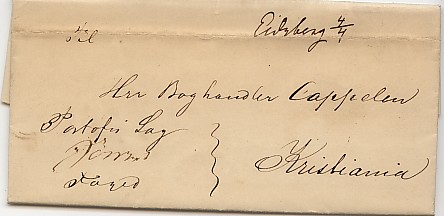 Eidsberg 4/4
Til
Hrr Boghandler Cappelen
Portofri Sag
Kristiania